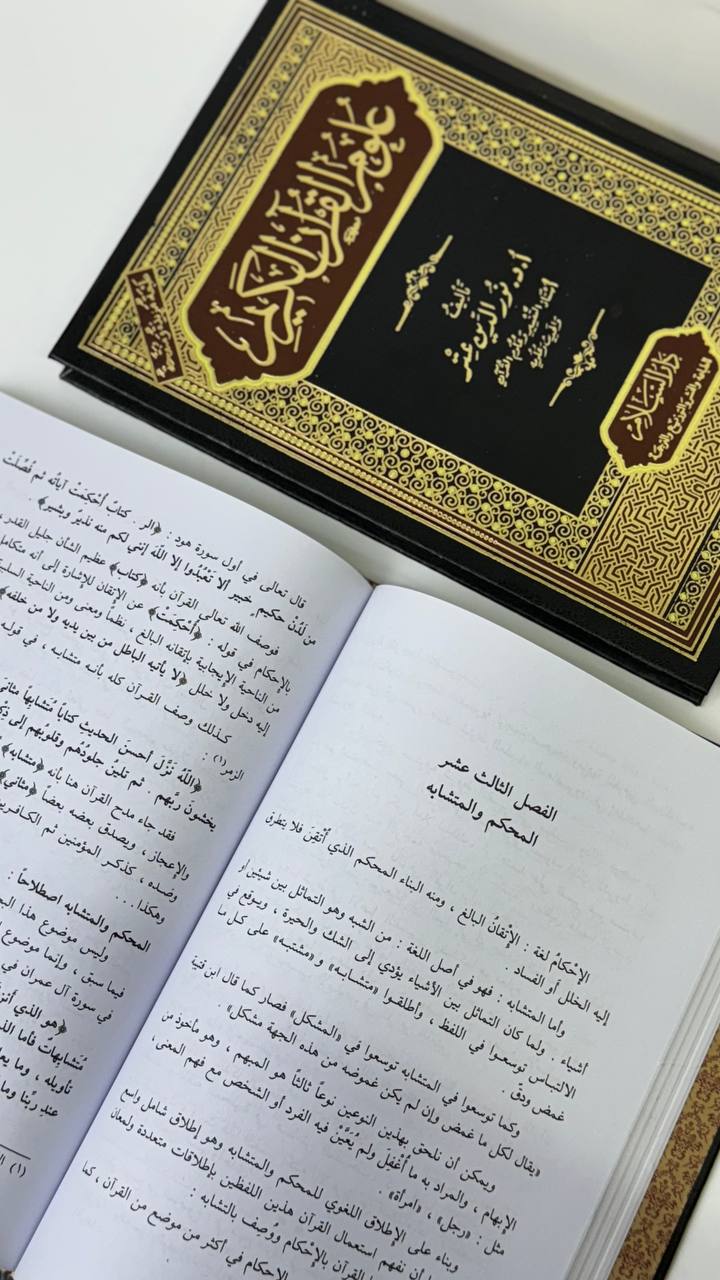 علوم القرآن الكريم
تأليف
أ.د. نور الدين عتر
أستاذ التفسير وعلوم القرآن
دار السلام
للطباعة والنشر والتوزيع والترجمة
الفصل الثالث عشر
المحكم والمتشابه
الإِحْكامُ لغة : الإتقانُ البالغ ، ومنه البناء المحكم الذي أُتْقِنَ فلا يتطرق
إليه الخلل أو الفساد .
وأما المتشابه : فهو في أصل اللغة : من الشبه وهو التماثل بين شيئين أو
أشياء . ولما كان التماثل بين الأشياء يؤدي إلى الشك والحيرة ، ويوقع في
الالتباس توسعوا في اللفظ ، وأطلقوا «متشابه» و«مشتبه» على كل ما
غمض ودقّ .
وكما توسعوا في المتشابه توسعوا في «المشكل» فصار كما قال ابن قتيبة
«يقال لكل ما غمض وإن لم يكن غموضه من هذه الجهة مشكل» .
ويمكن أن نلحق بهذين النوعين نوعاً ثالثاً هو المبهم ، وهو مأخوذ من
الإبهام ، والمراد به ما أُغْفِلَ ولم يُعَيَّنْ فيه الفرد أو الشخص مع فهم المعنى ،
مثل : «رجل» ، «امرأة» .
وبناء على الإطلاق اللغوي للمحكم والمتشابه وهو إطلاق شامل واسع
أن نفهم استعمال القرآن هذين اللفظين بإطلاقات متعددة ولمعان
القرآن بالإحكام ووُصِف بالتشابه :
الإحكام في أكثر من موضع من القرآن ، كما
قال تعالى في أول سورة هود : ﴿الر . كتابٌ أُحْكِمَتْ آياتُه ثم فُصِّلَتْ
من لَدُنْ حكيمٍ خبير ألا تَعْبُدوا إلا اللهَ إنني لكم منه نذيرٌ وبشير﴾ .
فوصف الله تعالى القرآن بأنه ﴿كتاب﴾ عظيم الشأن جليل القدر ،
بالإحكام في قوله : ﴿أُحْكِمَتْ﴾ عن الإتقان للإشارة إلى أنه متكامل
من الناحية الإيجابية بإتقانه البالغ . نظماً ومعنى ومن الناحية
إليه دخل ولا خلل ﴿لا يأتيه الباطل من بين يديه ولا من خلفه﴾
كذلك وصف القرآن كله بأنه متشابه ، في قوله
الزمر(١) :
﴿اللهُ نَزَّلَ أحسنَ الحديث كتاباً مُتَشابهاً مثاني
يخشون ربَّهم . ثم تلينُ جلودُهم وقلوبُهم إلى
فقد جاء مدح القرآن هنا بأنه ﴿متشابه﴾
والإعجاز ، ويصدق بعضه بعضاً ﴿مثاني﴾
وضده ، كذكر المؤمنين ثم الكافرين
وهكذا ...
المحكم والمتشابه اصطلاحاً :
وليس موضوع هذا
فيما سبق ، وإنما موضوع
في سورة آل عمران في
﴿هو الذي
مُتَشابهاتٌ فأما
تأويله ، وما
عند ربِّنا وما
(١)